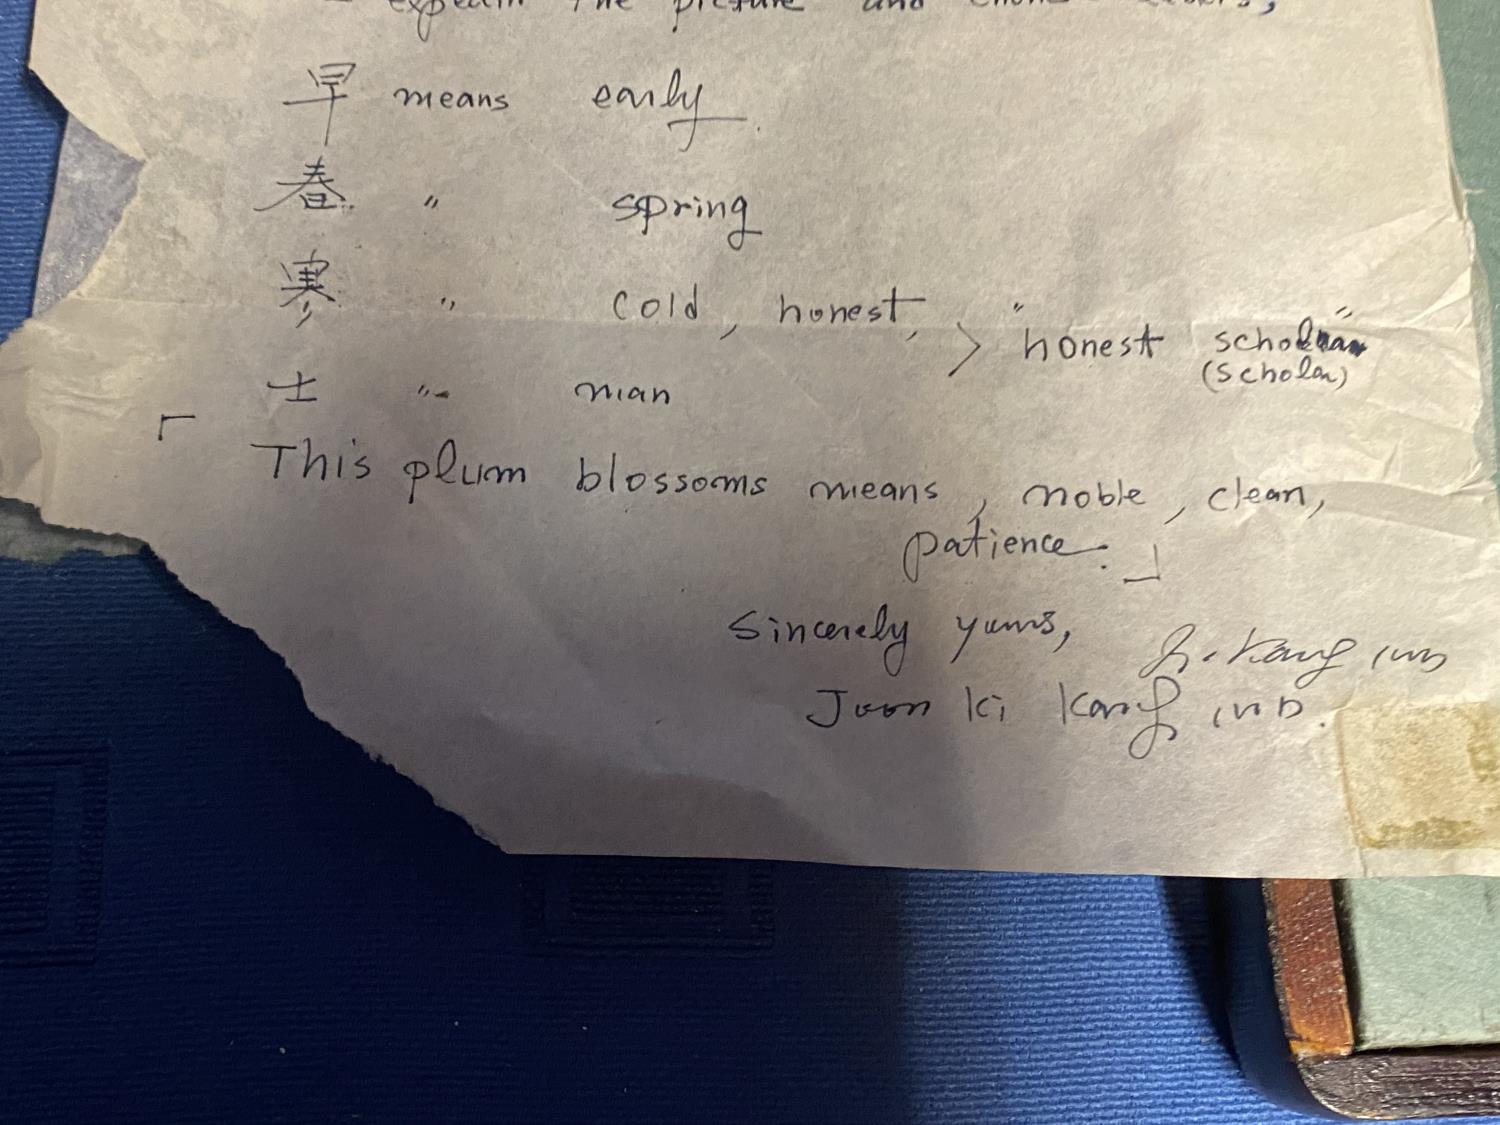 explain the picture and
早 means early.
春 〃 spring
寒 〃 cold, honest, > "honest scholar"
(scholar)
士 〃 man
「 This plum blossoms means, noble, clean,
patience. 」
Sincerely yours,
Joon ki Kang MD.